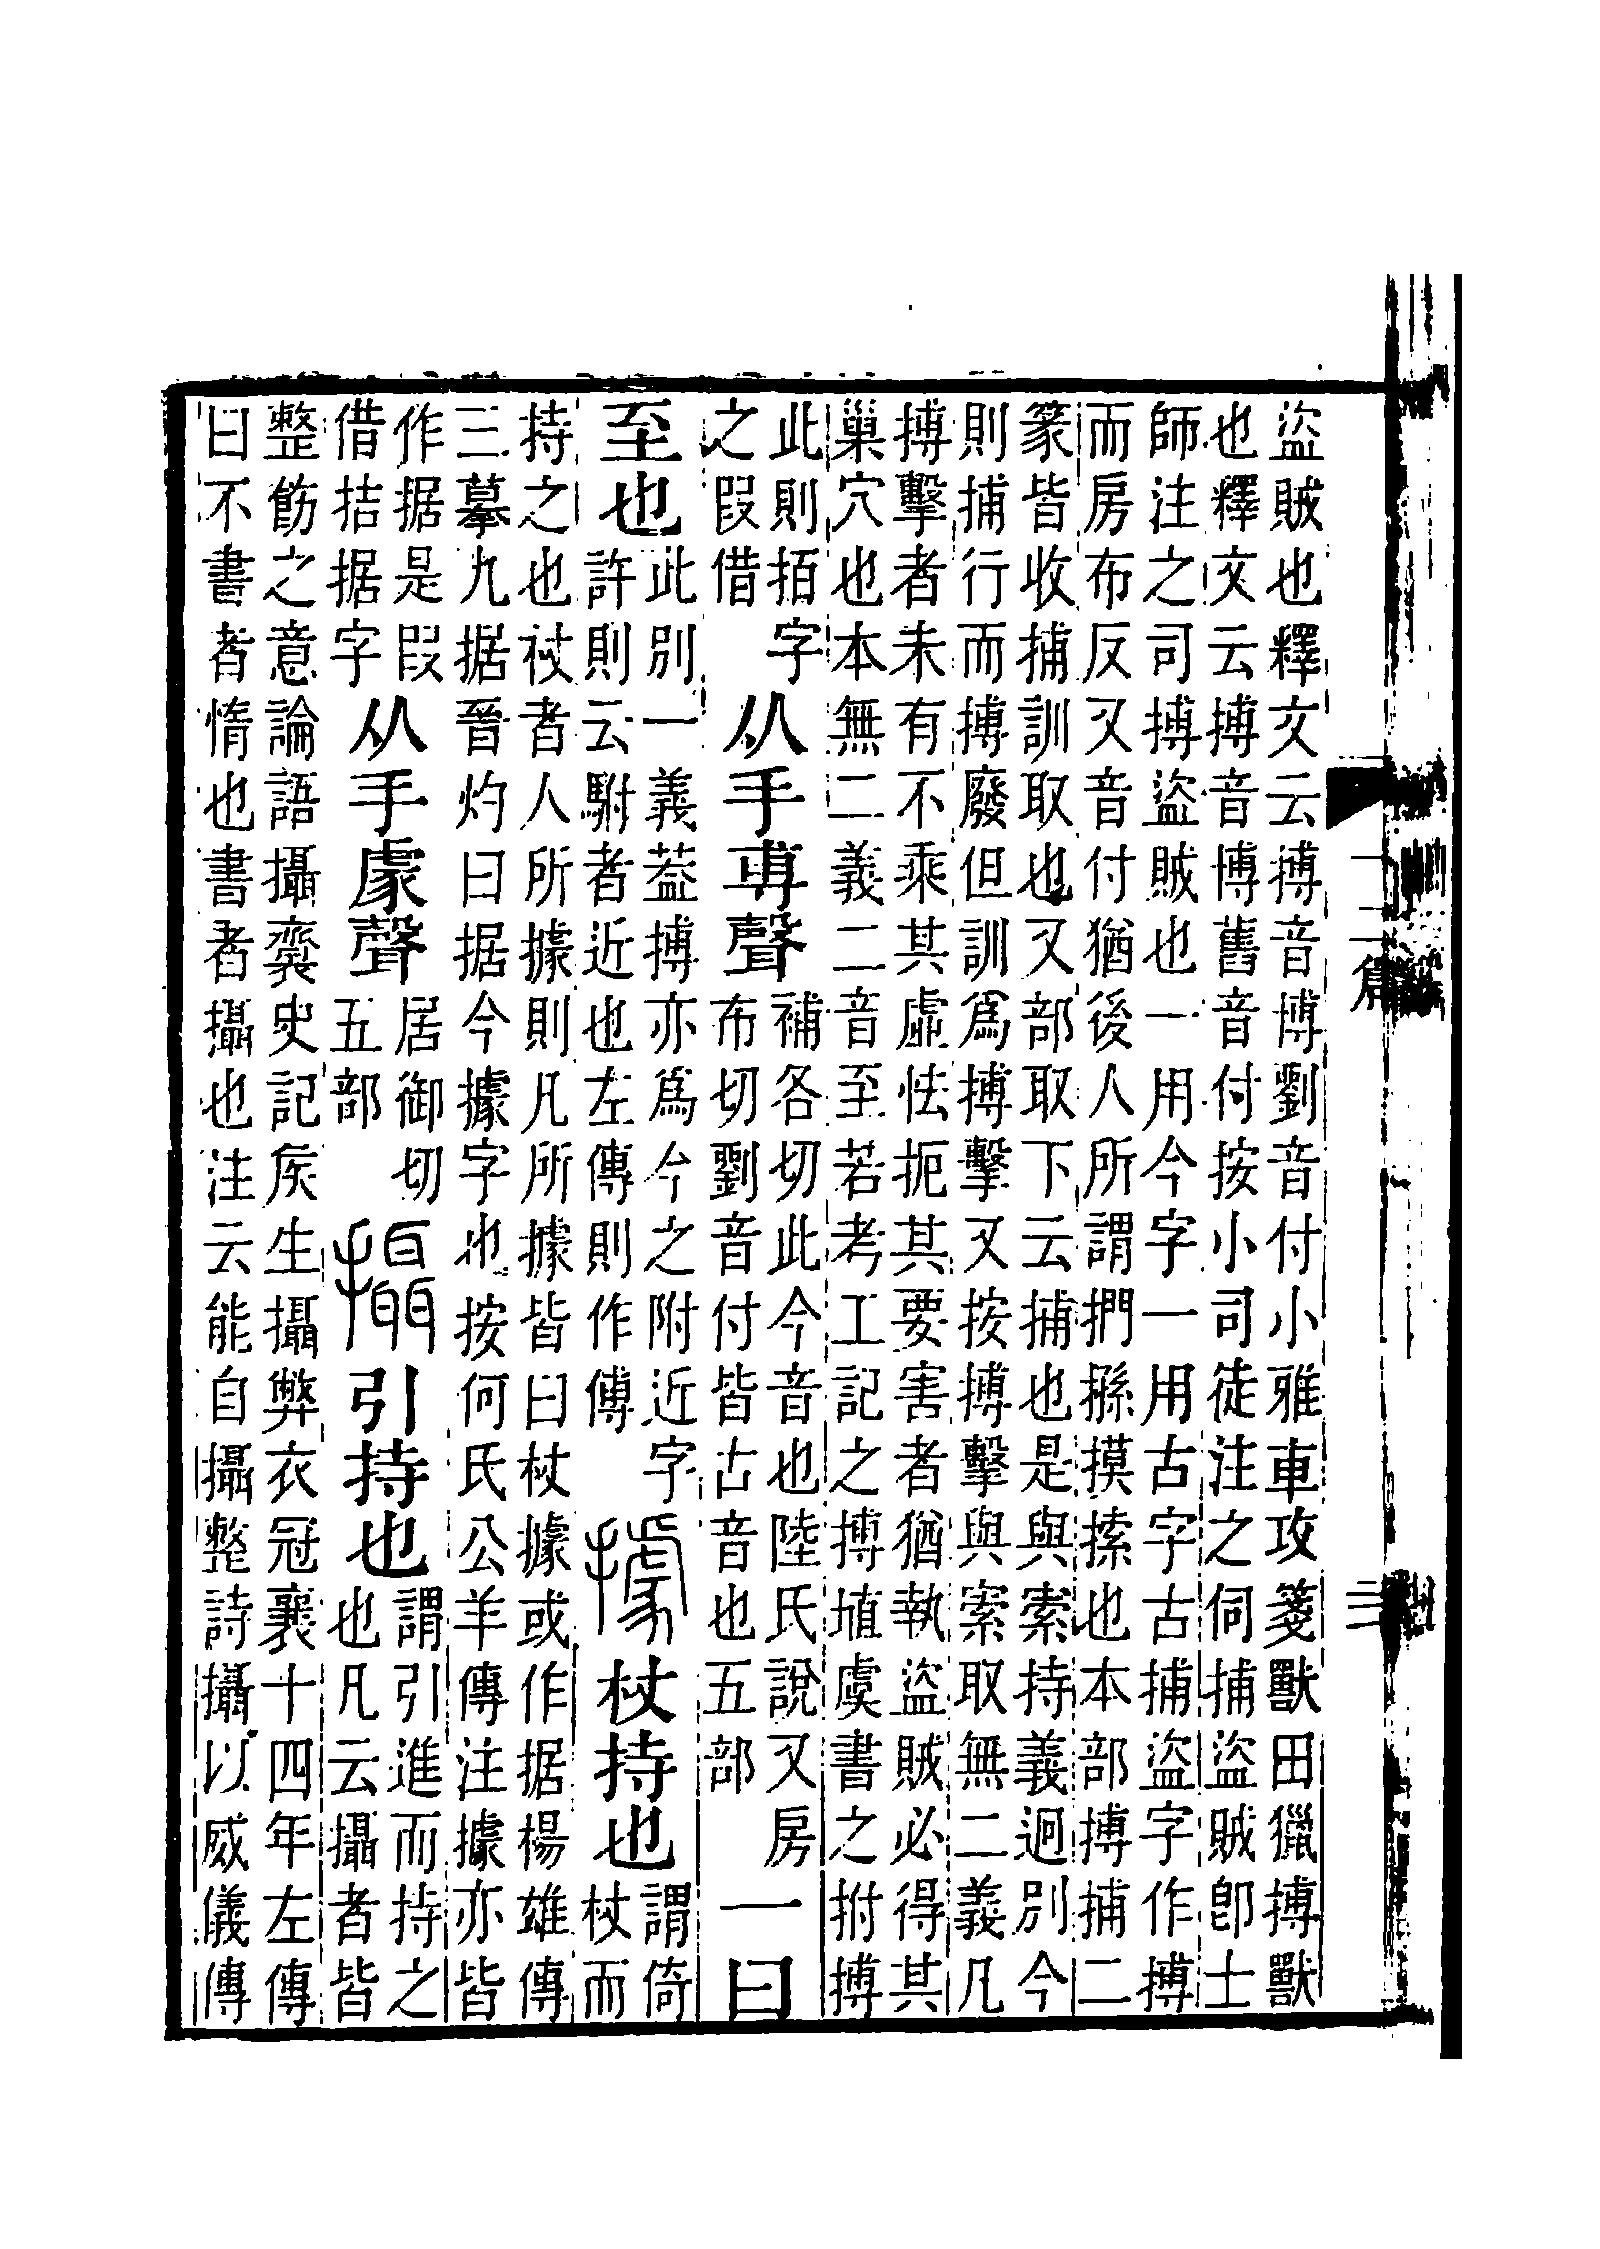 盜賊也釋文云搏音博劉音付小雅車攻箋獸田獵搏獸
也釋文云搏音博舊音付按小司徒注之伺捕盜賊卽士
師注之司搏盜賊也一用今字一用古字古捕盜字作搏
而房布反又音付猶後人所謂捫搎摸㩋也本部搏捕二
篆皆收捕訓取也又部取下云捕也是與索持義迥別今
則捕行而搏廢但訓爲搏擊又按搏擊與索取無二義凡
搏擊者未有不乘其虛怯扼其要害者猶執盜賊必得其
巢穴也本無二義二音至若考工記之搏埴虞書之拊搏
此則拍字
之叚借
从手尃聲
補各切此今音也陸氏說又房
布切劉音付皆古音也五部
一曰
至也
此別一義葢搏亦爲今之附近字
許則云駙者近也左傳則作傅
據
杖持也
謂倚
杖而
持之也杖者人所據則凡所據皆曰杖據或作据楊雄傳
三摹九据晉灼曰据今據字也按何氏公羊傳注據亦皆
作据是叚
借拮据字
从手豦聲
居御切
五部
攝
引持也
謂引進而持之
也凡云攝者皆
整飭之意論語攝齊史記矦生攝弊衣冠襄十四年左傳
曰不書者惰也書者攝也注云能自攝整詩攝以威儀傳
十二篇
三